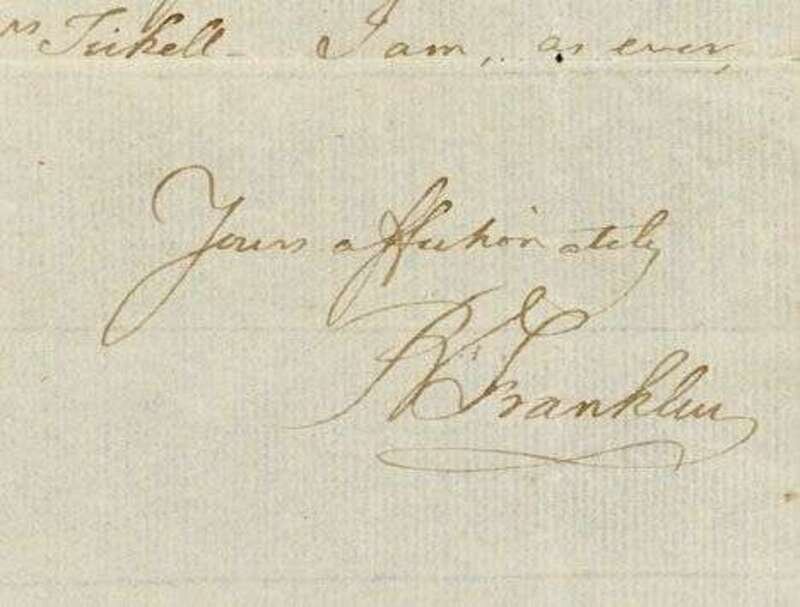 Mrs Tickell - I am, as ever,
Yours affectionately
W Franklin